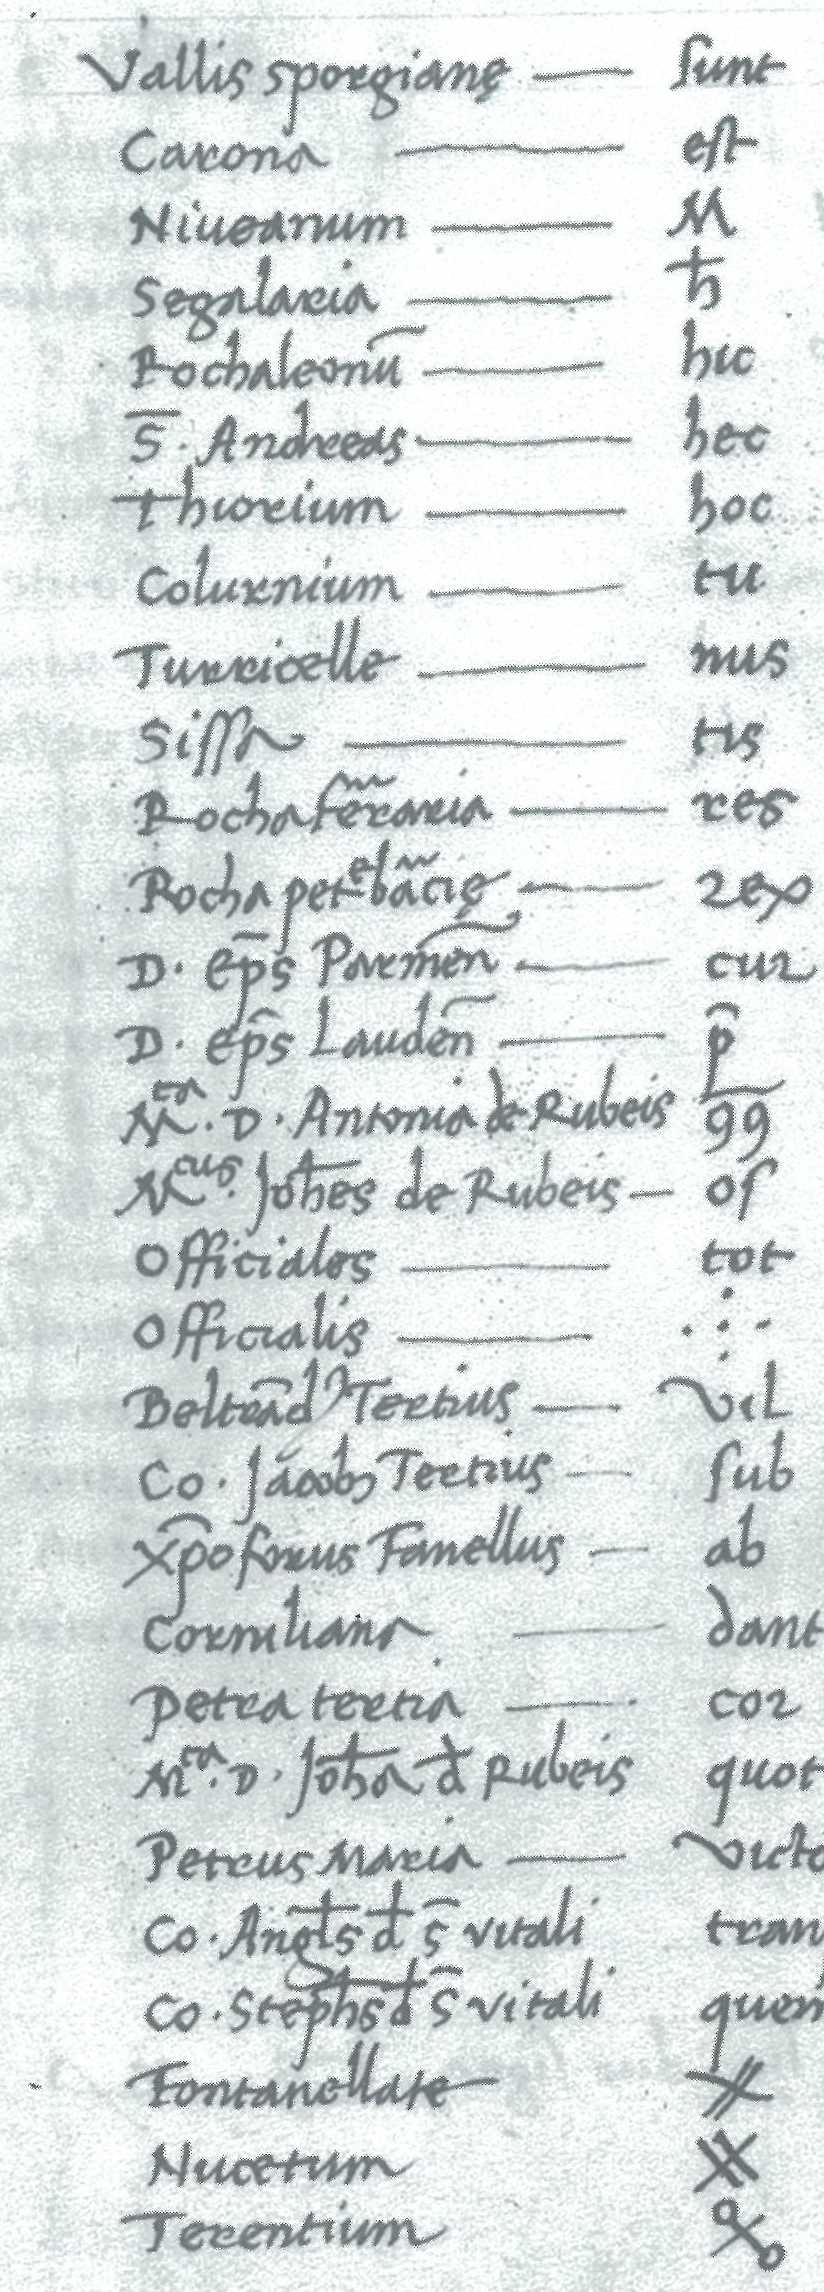 Vallis sporgianę — sunt
Carona — est
Niueanum — M
Segalaria — ħ
Rochaleonū — hic
S̄. Andreas — hec
Thiorium — hoc
Colurnium — tu
Turricelle — nus
Sissa — tis
Rocha — res
Rocha — rex
D. ep̄s Parmeñ — cur
D. ep̄s Laudeñ — p̄
Mᵗᵃ. D. Antonia de Rubeis 99
Mᶜᵘˢ. Joh̄es de Rubeis — of
Officiales — tot
Officialis —
Tertius — vil
Co. Jacobꝰ Tertius — sub
Xp̄oforus Fanellus — ab
Cormiliana — dant
Petra tertia — cor
Mᵗᵃ. D. Joh̄a đ Rubeis quot
Petrus Maria — victo
Co. Angl̄s đ s̄ vitali tran
Co. Steph̄s đ s̄ vitali quem
Fontanellate
Nucetum
Terentium